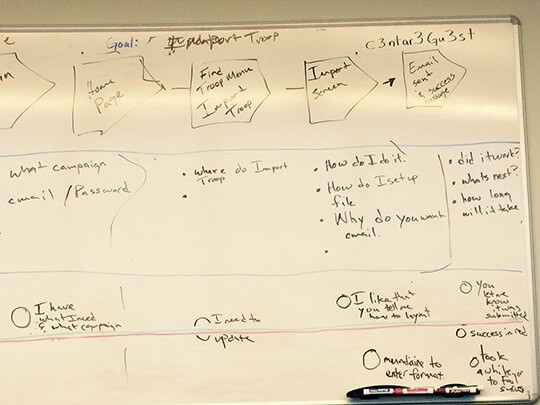 Goal: Import Troop
c3ntar3Gu3st
Home
Page
Find
Troop Menu
Import
Troop
Import
Screen
Email
sent
& success
message
what campaign
email / Password
• where do Import
Troop
•
• How do I do it.
• How do I setup
file
• Why do you want
email.
• did it work?
• whats next?
• how long
will it take
I have
what I need
& what campaign
I need to
update
I like that
you tell me
how to layout
You
let me
know
it was
submitted
success in red
mundane to
enter format
took
a while
to